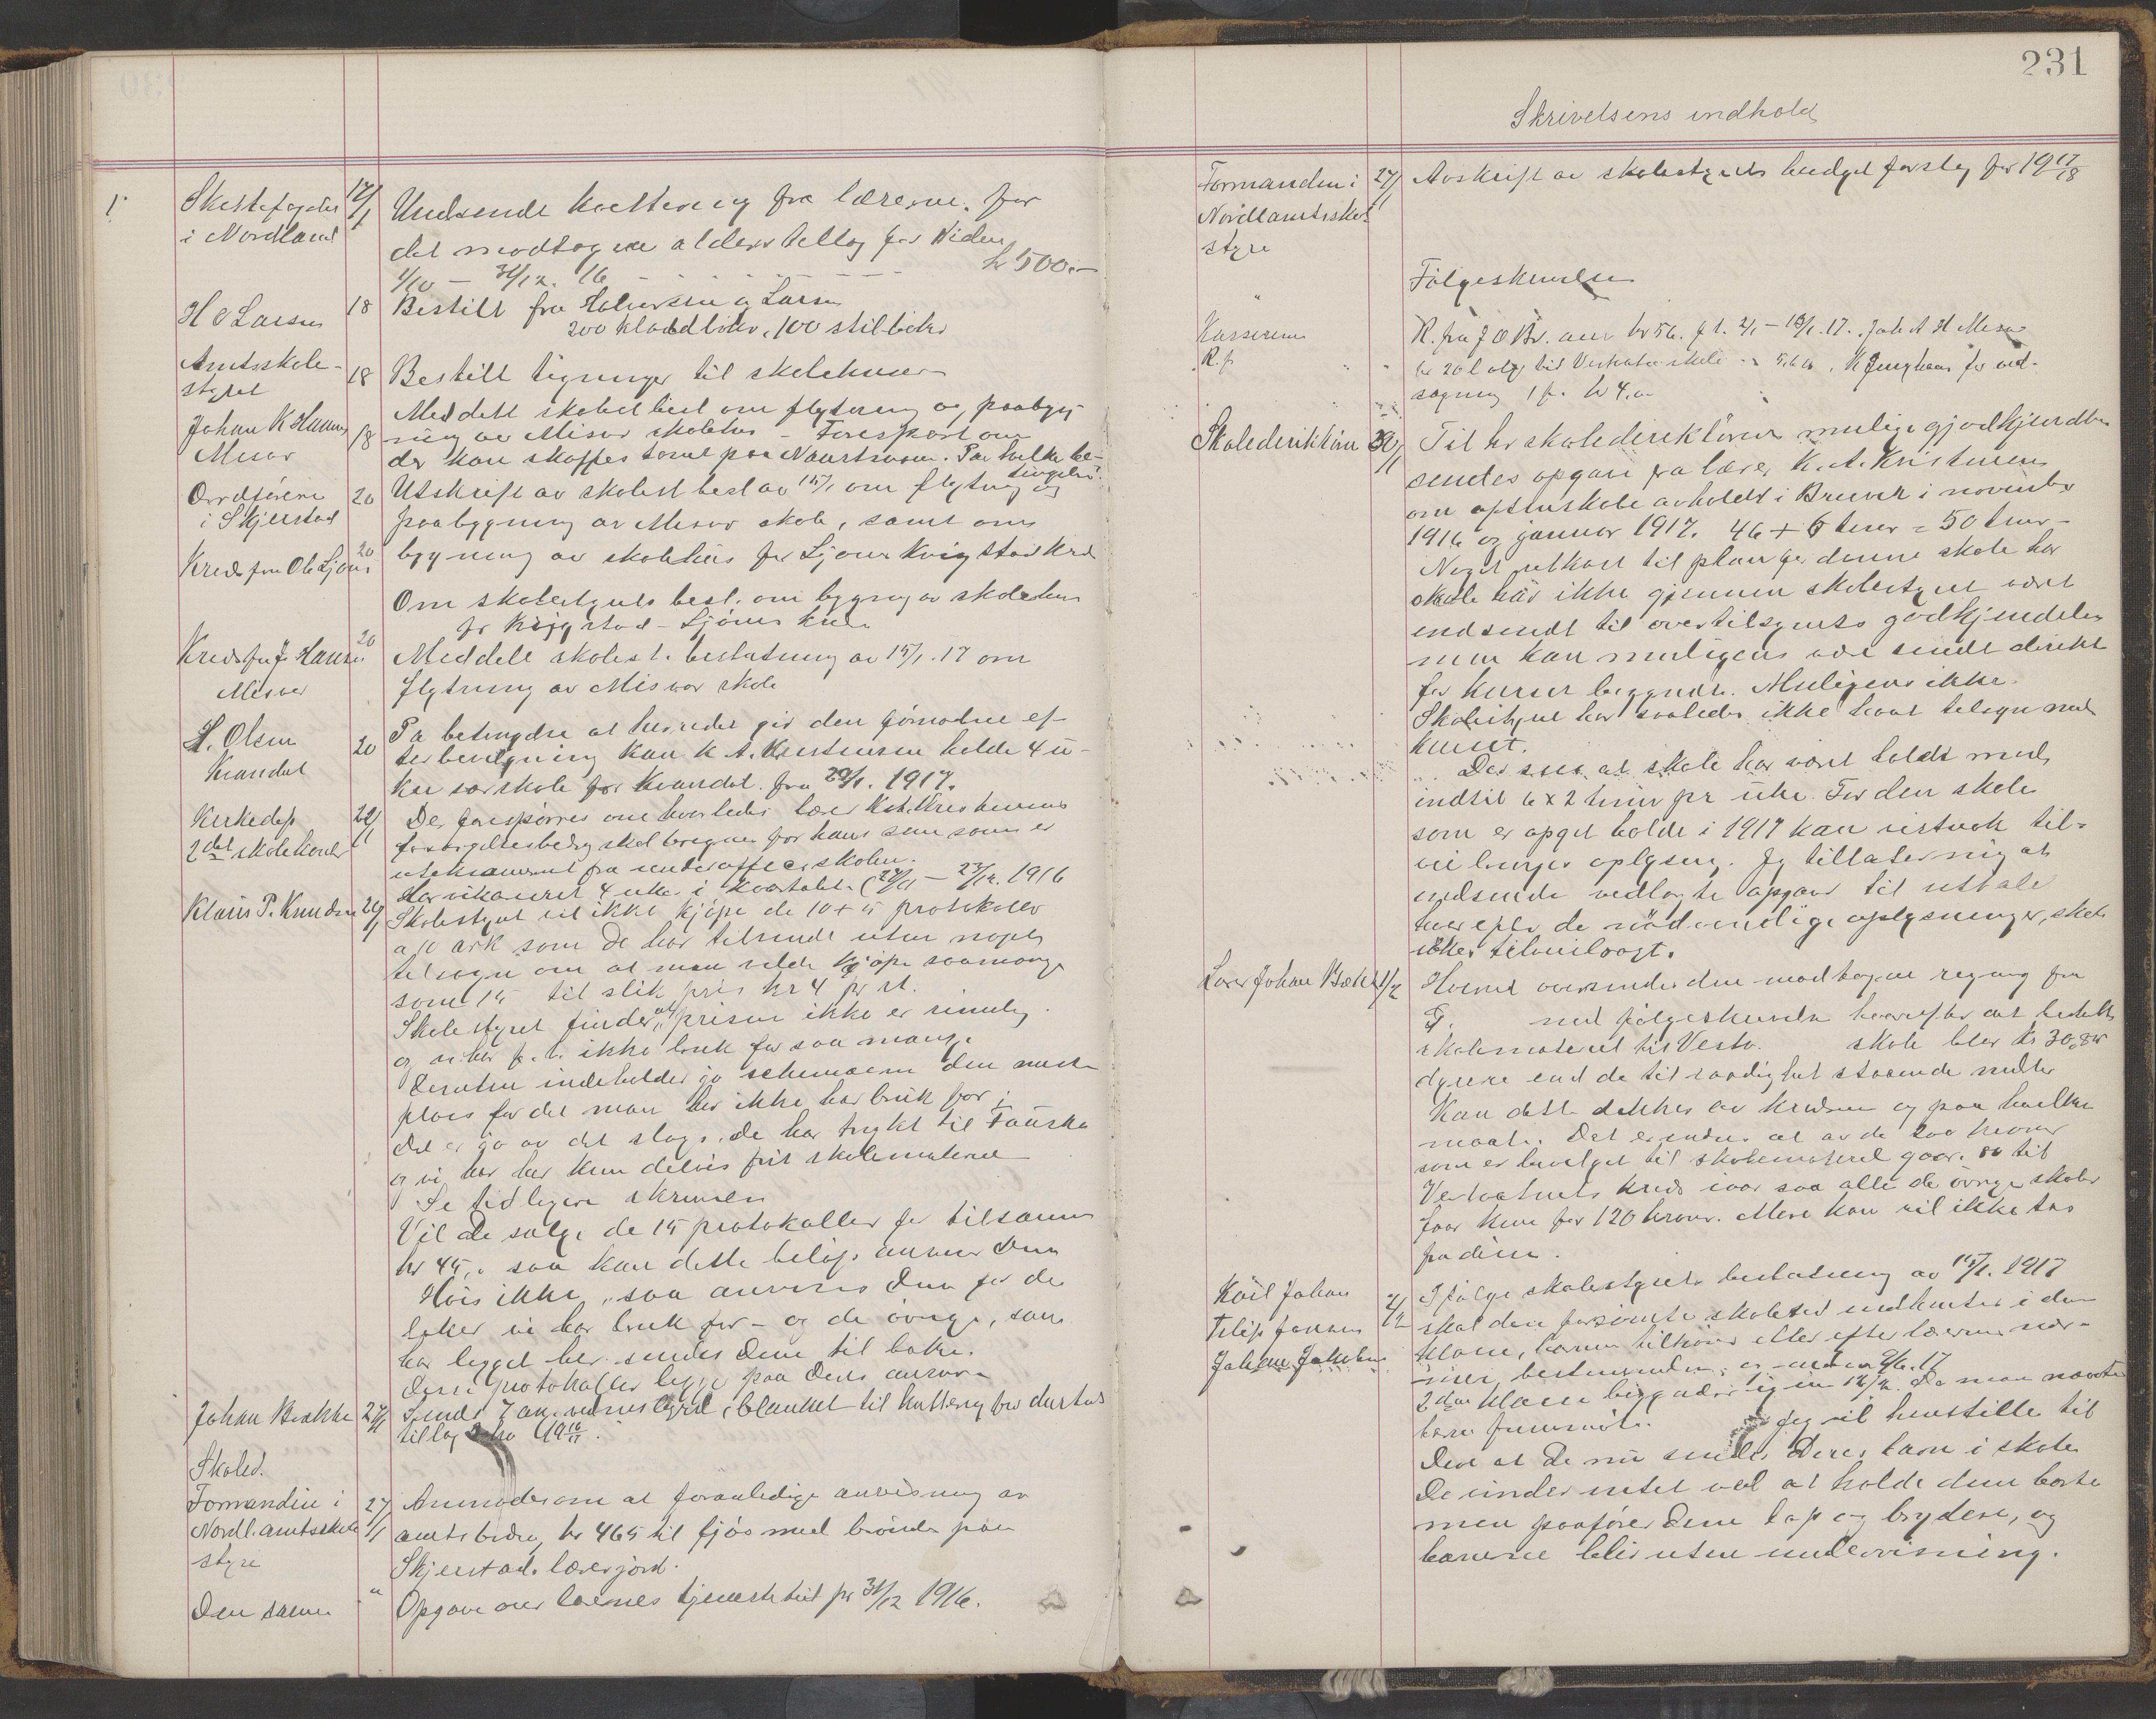 231
Skrivelsens indhold
1.
Skattefogden i Nordland 17/1 Indsende kvittering fra lærerne for
det modtagne alderstillæg for tiden
1/10 – 31/12. 16 - - - - - - kr 500.-
H O Larsen 18 Bestilt fra Halvorsen og Larsen
200 kladdbøker, 100 stilbøker
Amtsskolestyret 18 Bestilt tegninger til skolehuser
Johan K Hansen Misvær 18 Meddelt skolest besl om flytning og paabyg-
ning av Misvær skolehus – Forespørt om
der kan skaffes tomt paa . Paa hvilke be-
tingelser?
Ordføreren i Skjerstad 20 Utskrift av skolest besl av 15/1 om flytning og
paabygning av Misvær skole, samt om
Kredsfm Ole Ljønes 20 bygning av skolehus for Ljønes Kvigstad kreds
Om skolestyrets besl. om bygning av skolehus
for Kvigstad – Ljønes kreds
Kredsfm J. Hansen Misvær 20 Meddelt skolest. beslutning av 15/1. 17 om
flytning av Misvær skole
H. Olsen Kvandal 20 Pa betingelse at herredet gir den fornødne ef-
terbevilgning kan K A. Kristensen holde 4 u-
ker særskole for Kvandal. fra 29/1. 1917.
Kirkedep 2det skolekontor 22/1 Der forespørres om hvorledes lærer K. A. Kristensens
skal beregnes for hans søn som er
uteksamineret fra underofficerskolen.
Har vikarieret 4 uker i kvartalet. ( – 23/12. 1916
Klaus P. Knudsen 26/1 Skolestyret vil ikke kjøpe de 10 + 5 protokoller
a 10 ark som De har tilsendt uten noget
tilsagn om at man vilde kjøpe saamange
som 15 til slik pris kr 4 pr st.
Skolestyret finder, at prisen ikke er rimelig.
og vi har f. t. ikke bruk for saa mange
Desuten indeholder jo schemaerne den meste
plass for det man her ikke har bruk for i
Det er jo av det slags, De har trykt til Fauske
og vi har her kun delvis frit skolemateriel
Se tidligere skrivelse
Vil De sælge de 15 protokoller for tilsammen
kr 45,- saa kan dette beløp anvises Dem
Hvis ikke, saa anvises Dem for de
bøker vi har bruk for – og de øvrige, som
har ligget her sendes Dem til bake.
Disse protokoller ligger paa Deres ansvar
Johan Bakke 27/1 Sendt 7 blanket til kvittering for dyrtids
tillæg
Skoled.
Formanden i Nordl. amtsskolestyre 27/1 Anmodes om at foranledige anvisning av
amtsbidrag kr 465 til fjøs med brønd paa
Skjerstads lærerjord.
Den samme " Opgave over lærernes tjenestetid pr 31/12 1916.
Formanden i Nordlamtsskolestyre 27/1 Avskrift av skolestyrets budget forslag for 19 17/18
" Følgeskrivelse
Kassereren R. fra J O Br. kr 56. f t. 2/1 – 13/1. 17.
R. f.
Skoledirektøren 30/1 Til hr skoledirektørens mulige gjodkjendelse
sendes opgave fra lærer K. A. Kristensen
om aftenskole avholdt i Breivik i november
1916 og januar 1917. 46 + 6 timer = 50 timer –
Noget utkast til plan for denne skole har
skole har ikke gjennem skolestyret været
indsendt til overtilsynets godkjendelse
men kan muligens være sendt direkte
før kurset begyndte. Muligens ikke.
Skolestyret har saaledes ikke havt tilsyn med
kurset.
Der sees at skole har været holdt med
indtil 6 x 2 timer pr uke. For den skole
som er opgit holdt i 1917 kan vistnok til-
veiebringes oplysning. Jeg tillater mig at
indsende vedlagte opgave til uttalelse
hvorefter de nødvendige oplysninger skal
bli tilveiebragt.
Lærer Johan Bakke 1/2 Hoved oversendes den modtagne regning fra
F. med følgeskrivelse hvorefter det bestilte
skolemateriel til Vestv. skole blev kr 30,80
dyrere end de til raadighet staaende midler
Kan dette dekkes av kredsen og paa hvilken
maate. Det er endnu at av de 200 kroner
som er bevilget til skolemateriel gaar 80 til
Vestvatnets kreds, saa alle de øvrige skoler
faar kun for 120 kroner. Mere kan vil ikke tas
fra disse.
Karl Johan
Filip Jensen 2/2
Johan Jakobsen
Ifølge skolestyrets beslutning av 15/1. 1917
skal den forsømte skoletid indhentes i den
klasse, barnet tilhører eller efter lærerens nær-
mere bestemmelse, og inden 9/6. 17
2den klasse begynder igjen 12/2. Da man næste
barn fremmøte. Jeg vil henstille til
Dem at De nu sender Deres barn i skole
De vinder intet ved at holde dem borte
men paafører Dem tap og bryderi, og
barnene blir uten undervisning.